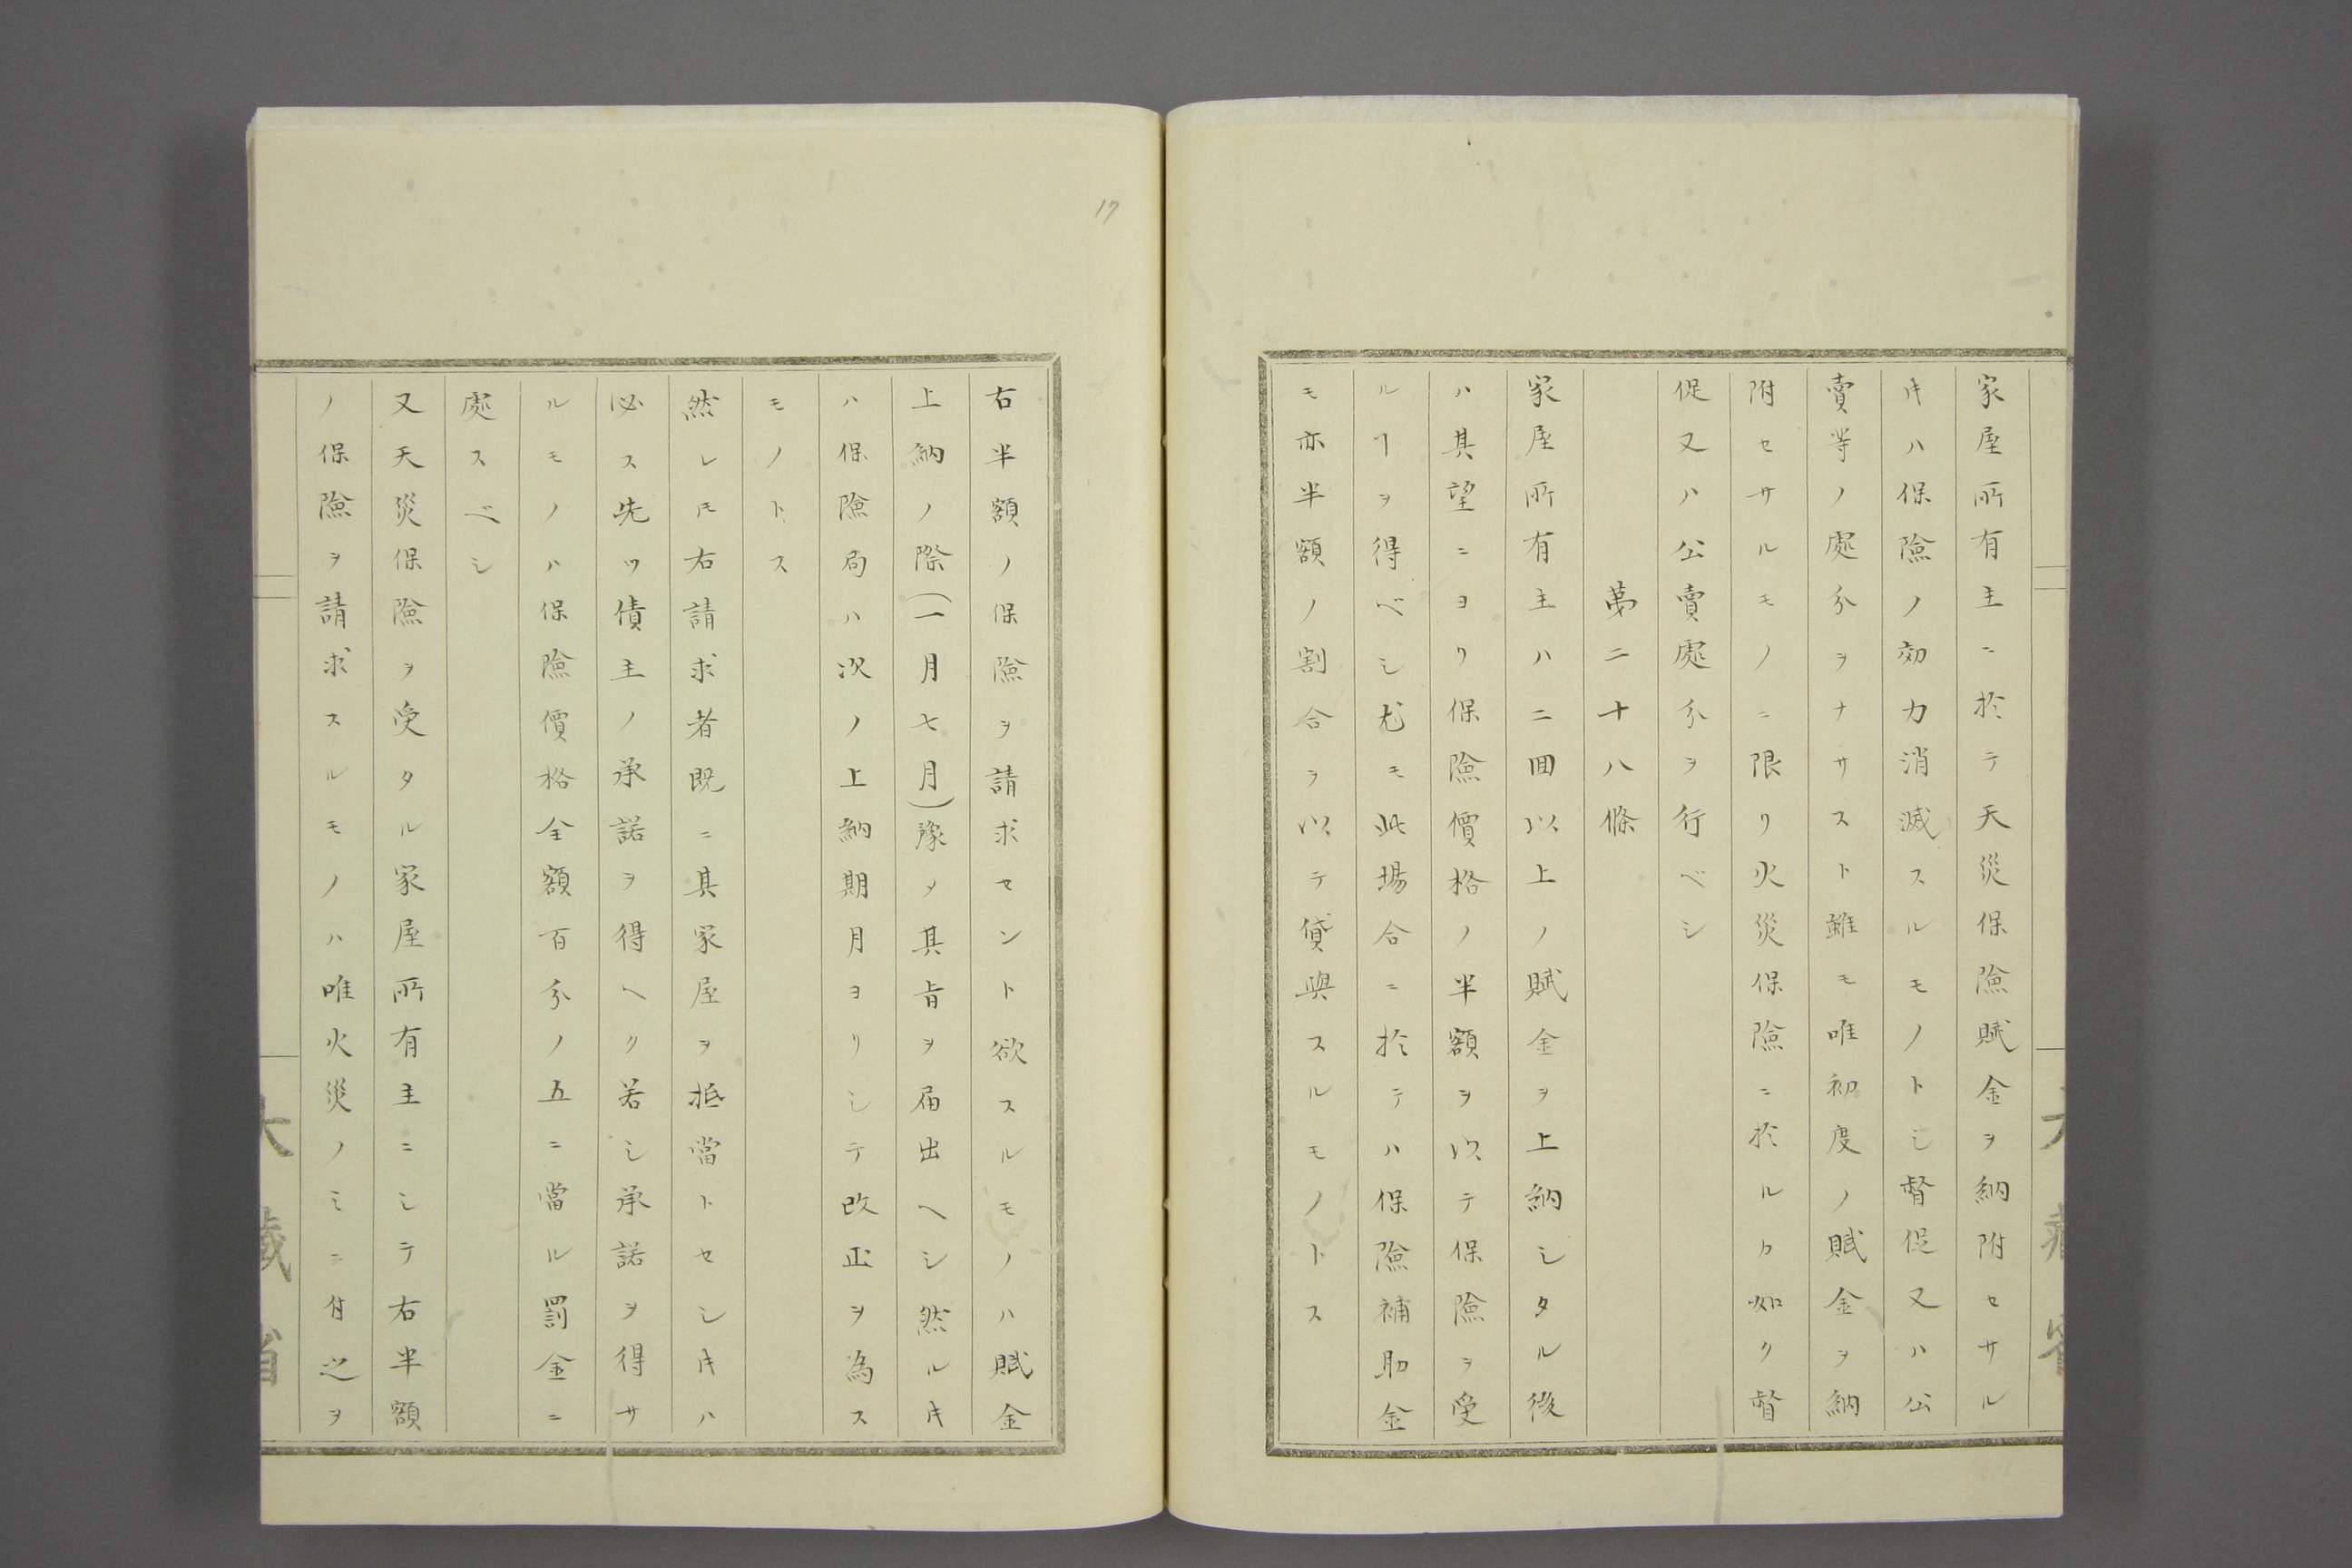 家屋所有主ニ於テ天災保險賦金ヲ納附セサル
片ハ保險ノ効力消滅スルモノトシ督促又ハ公
賣等ノ處分ヲナサスト雖モ唯初度ノ賦金ヲ納
附セサルモノニ限リ火災保險ニ於ルカ如ク督
促又ハ公賣處分ヲ行ベシ
第二十八條
家屋所有主ハ二回以上ノ賦金ヲ上納シタル後
ハ其望ニヨリ保險價格ノ半額ヲ以テ保險ヲ受
ルヿヲ得ベシ尤モ此場合ニ於テハ保險補助金
モ亦半額ノ割合ヲ以テ貸與スルモノトス
17
右半額ノ保險ヲ請求セント欲スルモノハ賦金
上納ノ際(一月七月)豫メ其旨ヲ届出ヘシ然ル片
ハ保險局ハ次ノ上納期月ヨリシテ改正ヲ為ス
モノトス
然レ𪜈右請求者既ニ其家屋ヲ抵當トセシ片ハ
必ス先ツ債主ノ承諾ヲ得ヘク若シ承諾ヲ得サ
ルモノハ保險價格全額百分ノ五ニ當ル罰金ニ
處スベシ
又天災保險ヲ受タル家屋所有主ニシテ右半額
ノ保險ヲ請求スルモノハ唯火災ノミニ付之ヲ
大藏省